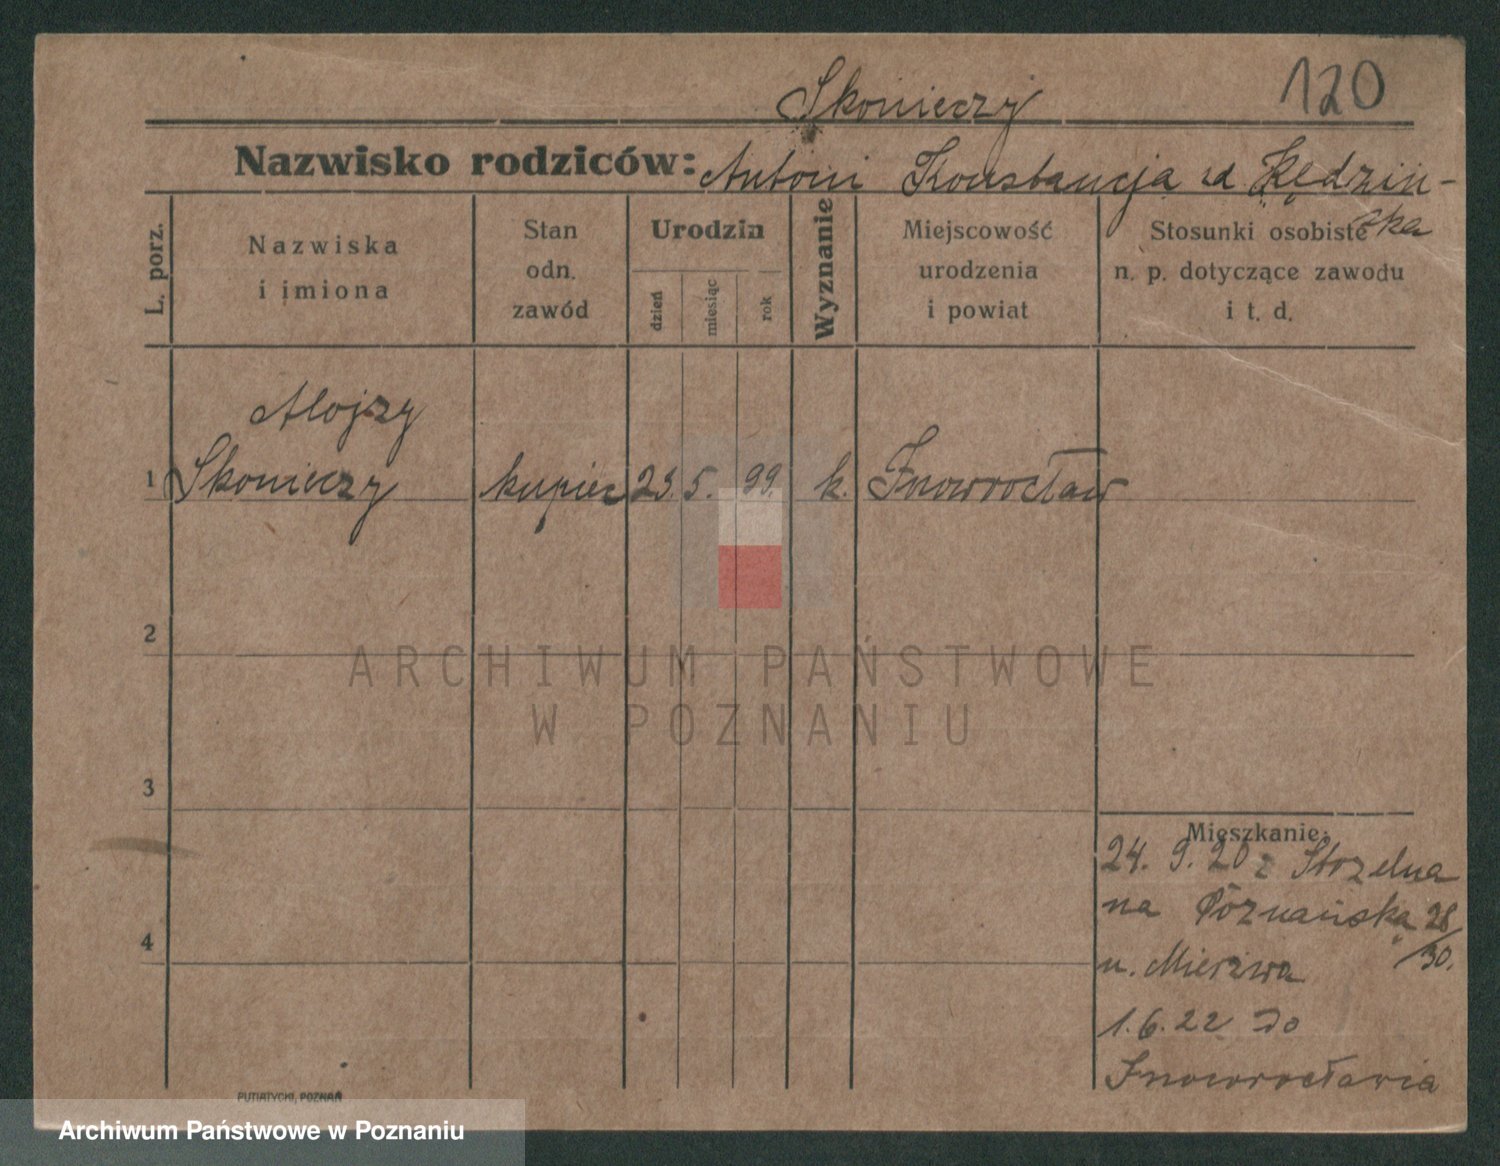 Skonieczy
120
Nazwisko rodziców: Antoni Konstancja zd Kędziń-
ska
L. porz.
Nazwiska
i imiona
Stan
odn.
zawód
Urodzin
dzień
miesiąc
rok
Wyznanie
Miejscowość
urodzenia
i powiat
Stosunki osobiste
n. p. dotyczące zawodu
i t. d.
Alojzy
1 Skonieczy kupiec 23. 5. 99. k. Inowrocław
2
ARCHIWUM PAŃSTWOWE
W POZNANIU
3
Mieszkanie:
24. 9. 20 z Strzelna
na Poznańska 28/30.
u. Mierzwa
4
1.6.22 do
Inowrocławia
PUTIATYCKI, POZNAŃ
Archiwum Państwowe w Poznaniu